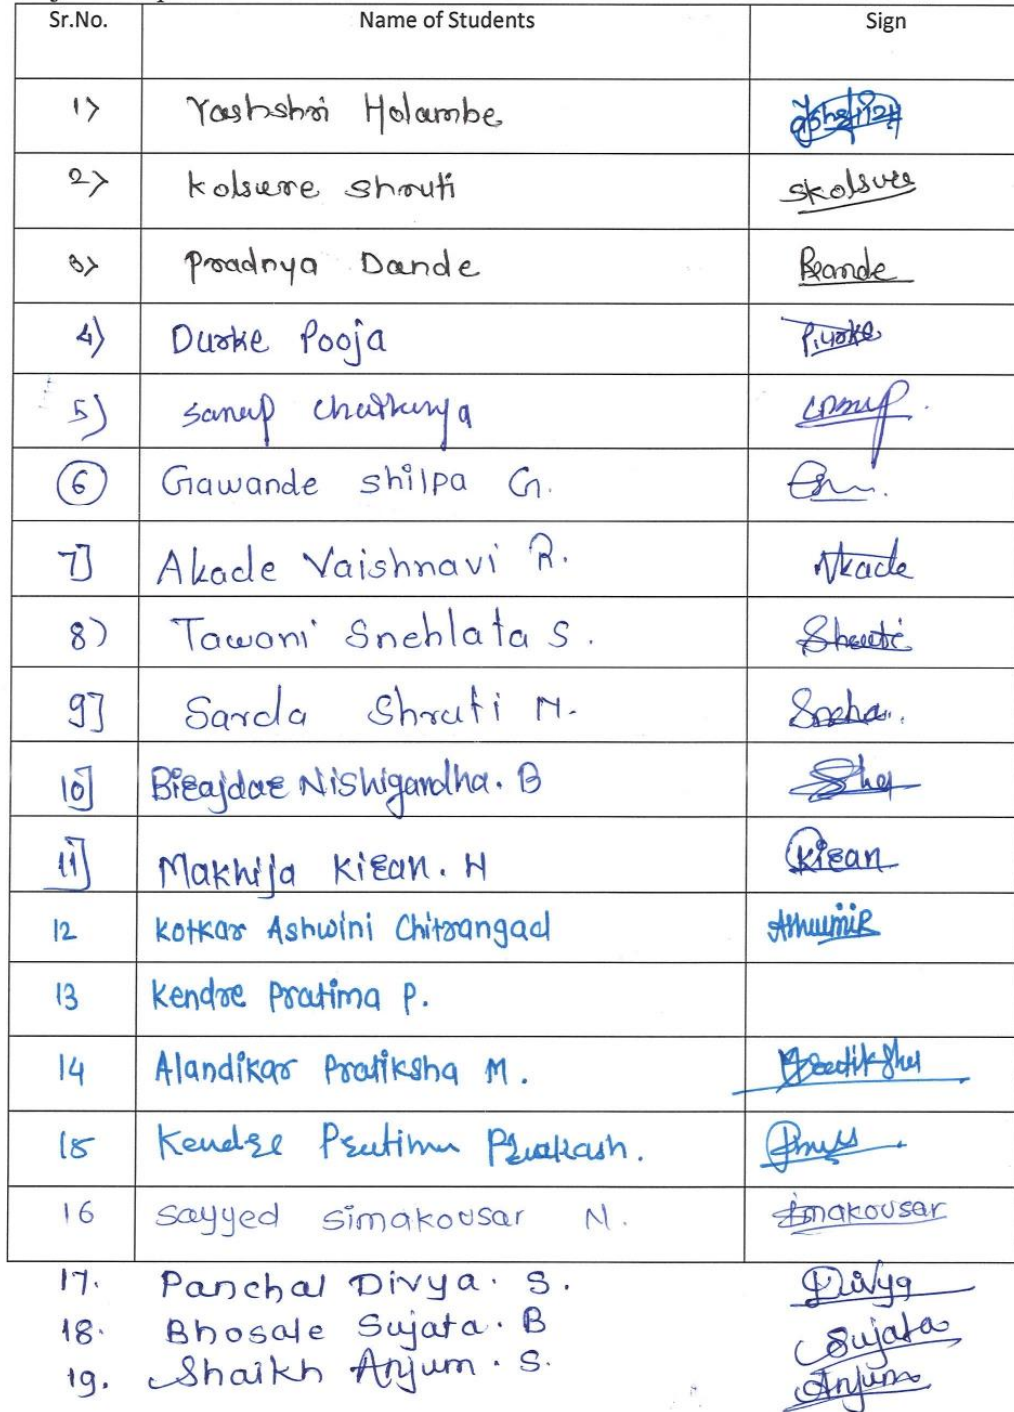 Sr.No. Name of Students Sign
1) Yashshri Holambe
2) Kolsure Shruti SKolsure
3) Pradnya Dande PDande
4) Durke Pooja P.Durke
5) Sanap Chaitanya
6 Gawande Shilpa G.
7] Akade Vaishnavi R. Akade
8) Tawani Snehlata S. Shruti
9] Sarda Shruti N. Sneha
10] Birajdar Nishigandha. B
11] Makhija Kiran. H Kiran
12 Kotkar Ashwini Chitrangad
13 Kendre Pratima P.
14 Alandikar Pratiksha M. Pratiksha
15 Kendre Pratima Prakash.
16 Sayyed Simakousar N. Simakousar
17. Panchal Divya. S. Divya
18. Bhosale Sujata. B Sujata
19. Shaikh Anjum. S. Anjum